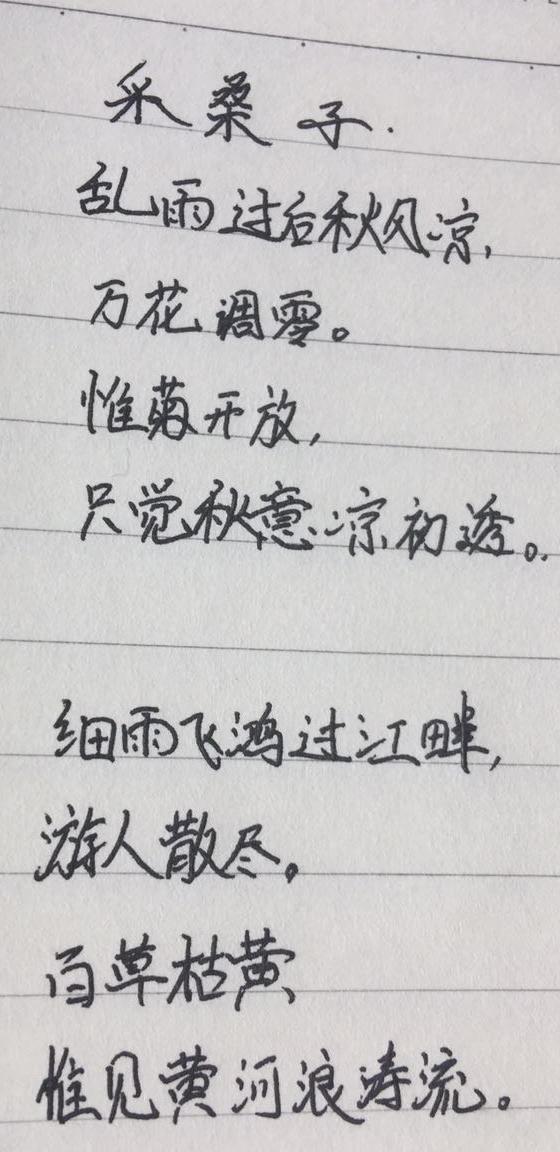 采桑子.
乱雨过后秋风凉,
万花调零。
惟菊开放,
只觉秋意凉初透。
细雨飞鸿过江畔,
游人散尽。
百草枯黄
惟见黄河浪涛流。